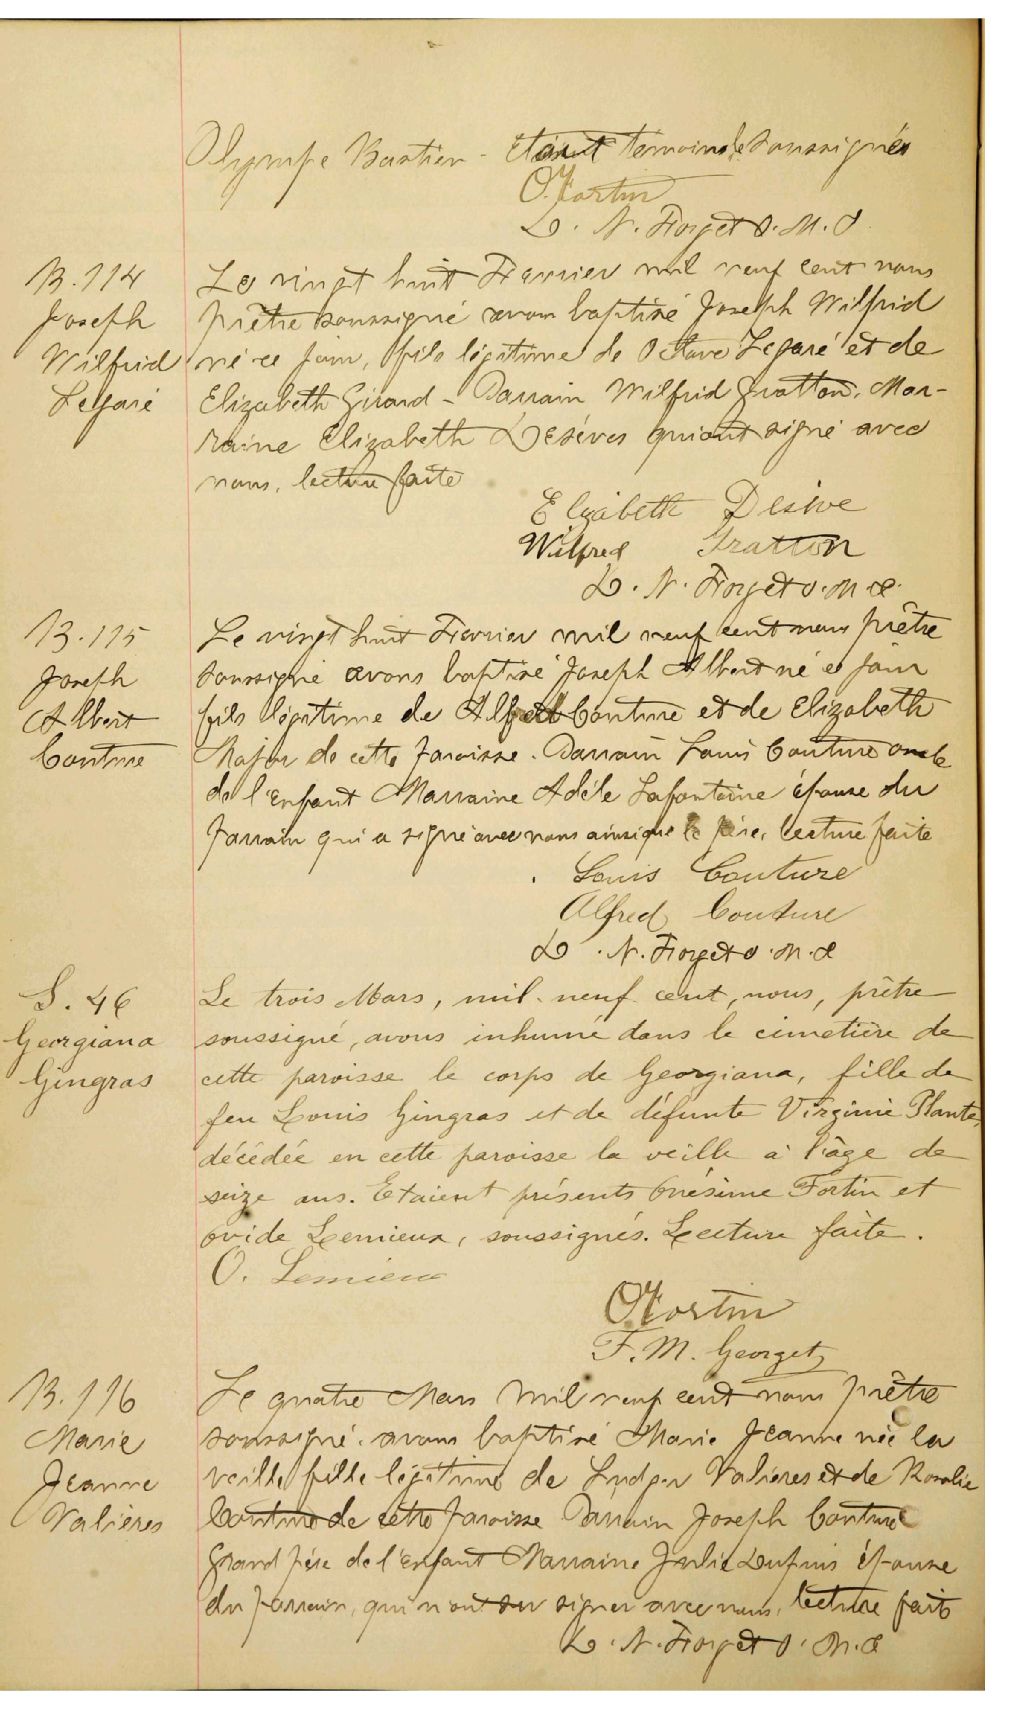 Olympe Bastien - Etant témoins le soussignés
O. Fortin
L. N. Forget O. M. I.
B. 114
Joseph
Wilfrid
Legaré
Le vingt huit Fevrier mil neuf cent nous
prêtre soussigné avons baptisé Joseph Wilfrid
né ce jour, fils légitime de Octave Legaré et de
Elizabeth Girard - Parrain Wilfrid Gratton, Mar-
raine Elizabeth Desèves qui ont signé avec
nous, lecture faite
Elizabeth Desive
Wilfred Gratton
L. N. Forget O. M. I.
B. 115
Joseph
Albert
Couture
Le vingt huit Fevrier mil neuf cent nous prêtre
soussigné avons baptisé Joseph Albert né ce jour
fils légitime de Alfred Couture et de Elizabeth
Major de cette paroisse. Parrain Louis Couture oncle
de l'enfant Marraine Adéle Lafontaine épouse du
parrain qui a signé avec nous ainsi que le père, lecture faite
Louis Couture
Alfred Couture
L. N. Forget O. M. I.
S. 46
Georgiana
Gingras
Le trois Mars, mil neuf cent, nous, prêtre
soussigné, avons inhumé dans le cimetière de
cette paroisse le corps de Georgiana, fille de
feu Louis Gingras et de défunte Virginie Plante,
décédée en cette paroisse la veille à l'âge de
seize ans. Etaient présents Onésime Fortin et
Ovide Lemieux, soussignés. Lecture faite.
O. Lemieux
O. Fortin
F. M. Georget
B. 116
Marie
Jeanne
Valières
Le quatre Mars mil neuf cent nous prêtre
soussigné avons baptisé Marie Jeanne née la
veille fille légitime de Ludger Valières et de Rosalie
Couture de cette paroisse Parrain Joseph Couture
Grand père de l'enfant Marraine Julie Dupuis épouse
du parrain, qui n'ont su signer avec nous, lecture faite
L. N. Forget O. M. I.